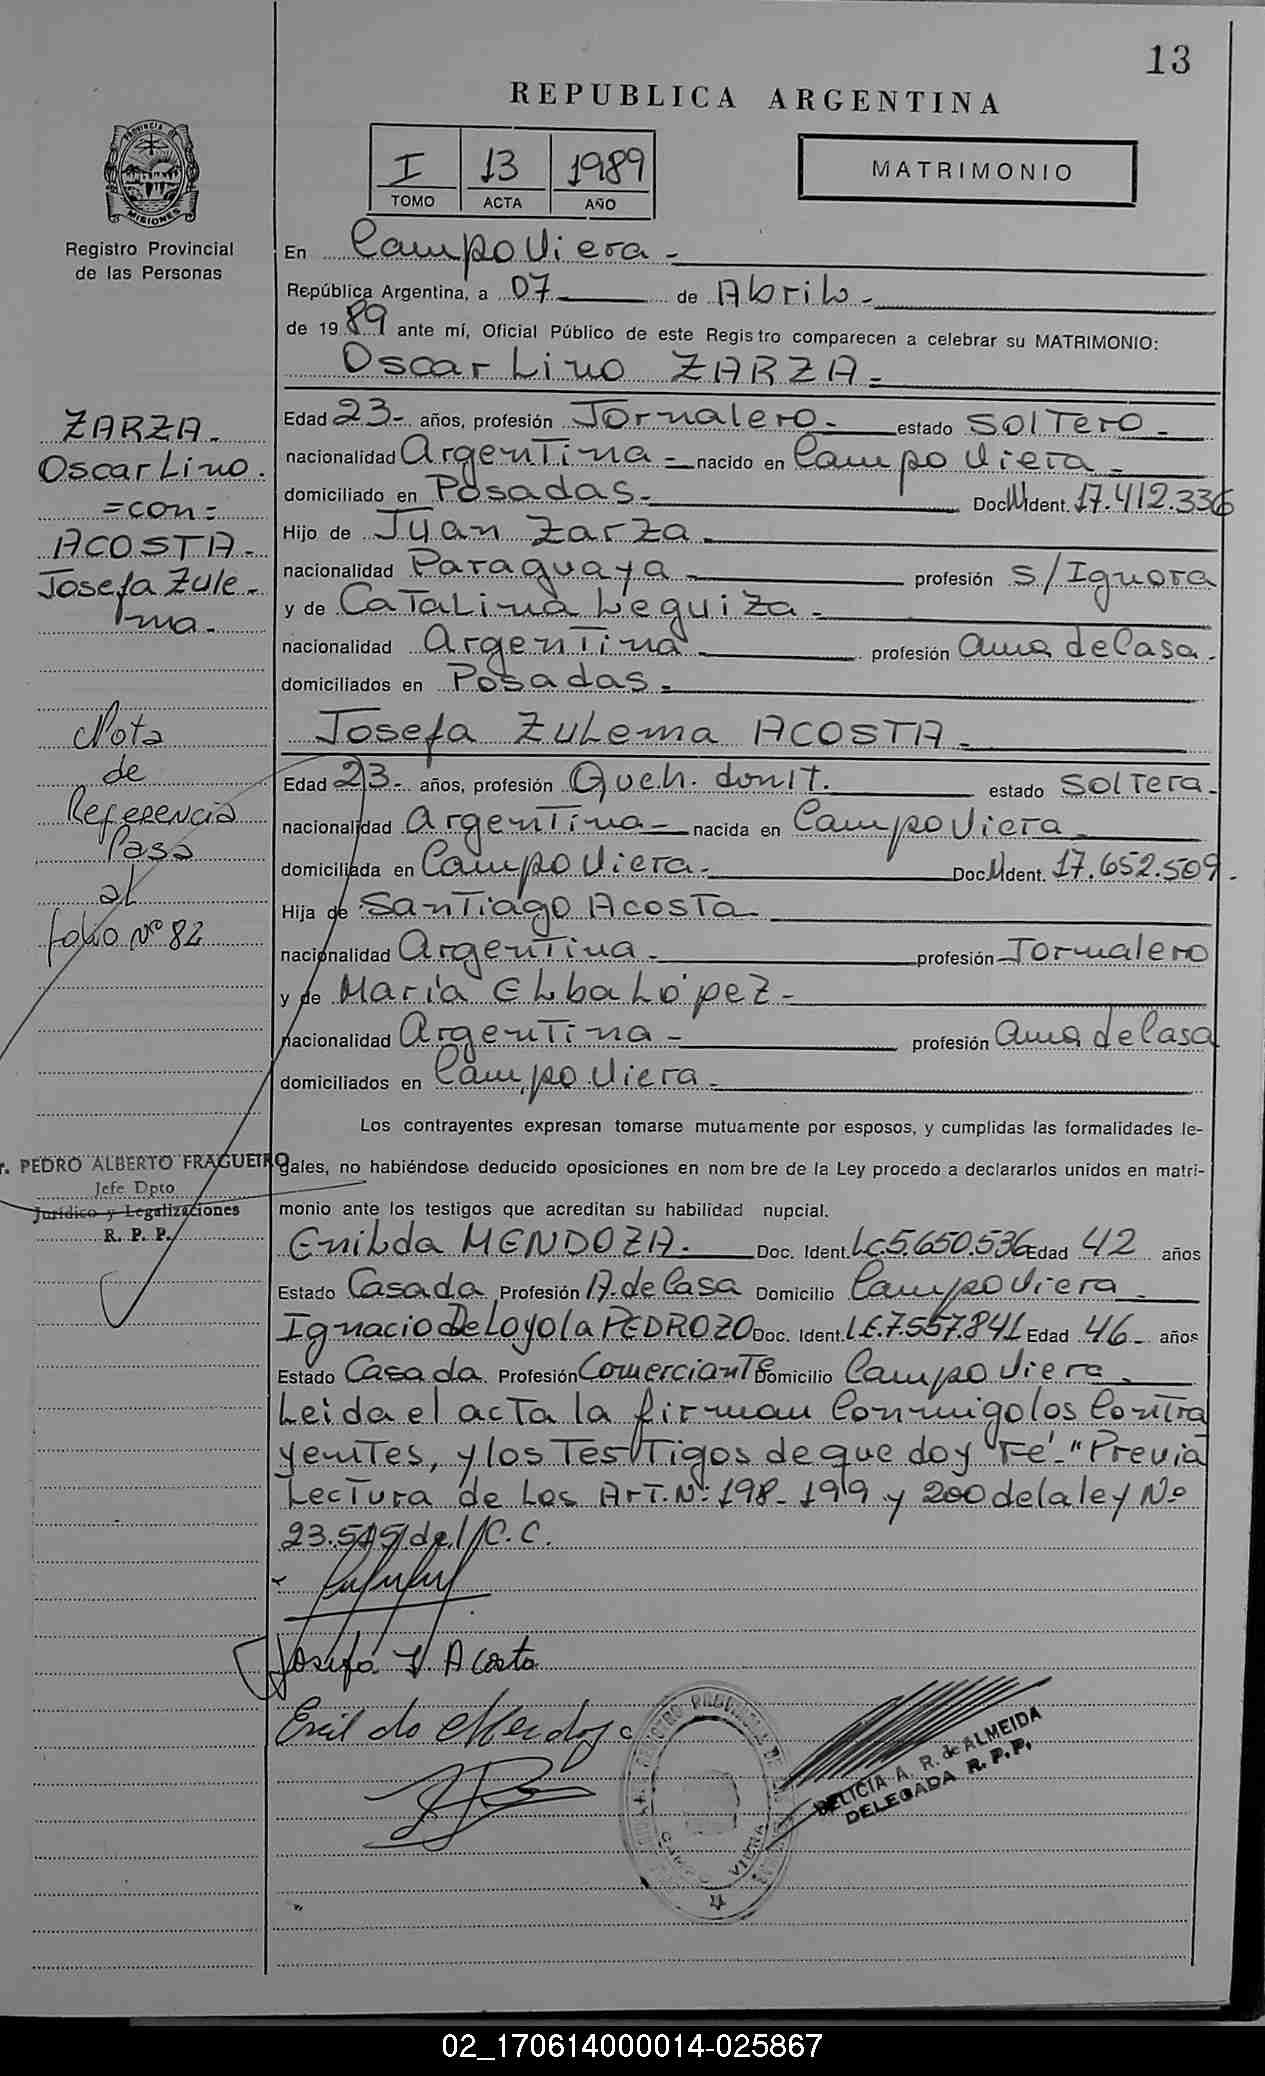 13
REPUBLICA ARGENTINA
PROVINCIA DE
MISIONES
Registro Provincial
de las Personas
I 13 1989
TOMO ACTA AÑO
MATRIMONIO
En Campo Viera -
República Argentina, a 07 de Abril -
de 1989 ante mí, Oficial Público de este Registro comparecen a celebrar su MATRIMONIO:
Oscar Lino ZARZA -
Edad 23- años, profesión Jornalero - estado SOLTERO -
nacionalidad Argentina - nacido en Campo Viera -
domiciliado en Posadas - Doc. Ident. 17.412.336
Hijo de Juan Zarza -
nacionalidad Paraguaya - profesión s/Ignora
y de Catalina Leguiza -
nacionalidad Argentina - profesión ama de Casa -
domiciliados en Posadas -
Josefa Zulema ACOSTA -
Edad 23- años, profesión Queh. domt. estado soltera -
nacionalidad Argentina - nacida en Campo Viera -
domiciliada en Campo Viera - Doc. Ident. 17.652.509 -
Hija de Santiago Acosta
nacionalidad Argentina - profesión Jornalero
y de María Elba López -
nacionalidad Argentina - profesión ama de Casa
domiciliados en Campo Viera -
Los contrayentes expresan tomarse mutuamente por esposos, y cumplidas las formalidades le-
gales, no habiéndose deducido oposiciones en nombre de la Ley procedo a declararlos unidos en matri-
monio ante los testigos que acreditan su habilidad nupcial.
Enilda MENDOZA - Doc. Ident. LC.5.650.536 Edad 42 años
Estado Casada Profesión A. de Casa Domicilio Campo Viera -
Ignacio De Loyola PEDROZO Doc. Ident. LE.7.557.841 Edad 46- años
Estado Casada. Profesión Comerciante Domicilio Campo Viera -
Leida el acta la firman Conmigo los Contra
yentes, y los Testigos de que doy Fé - "Previa
Lectura de Los Art. Nº 198 - 199 y 200 de la ley Nº
23.515 del C.C.
Josefa Z. Acosta
Enilda Mendoza
REGISTRO PROVINCIAL DE
CAMPO VIERA
DELICIA A. R. de ALMEIDA
DELEGADA R. P. P.
ZARZA -
Oscar Lino.
= con =
ACOSTA -
Josefa Zule -
ma -
Nota
de
Referencia
Pasa
al
folio Nº 82
r. PEDRO ALBERTO FRAGUEIRO
Jefe Dpto
Jurídico y Legalizaciones
R. P. P.
02_170614000014-025867